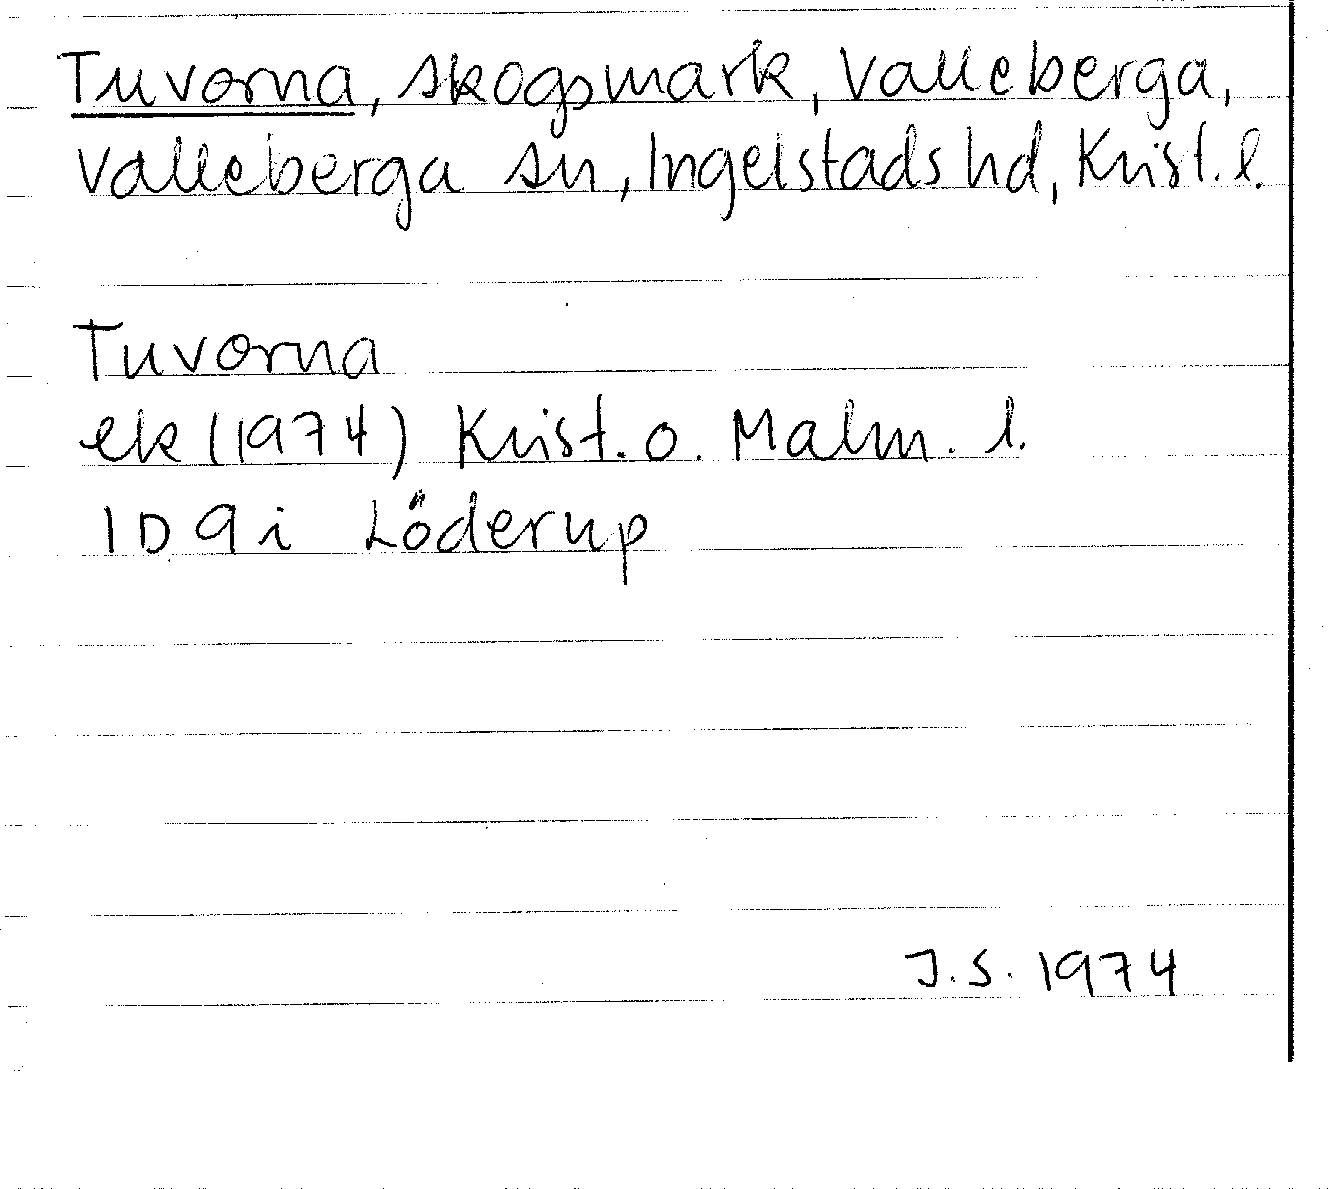 Tuvorna, skogsmark, Valleberga,
Valleberga sn, Ingelstads hd, Krist. l.
Tuvorna
ek (1974) Krist. o. Malm. l.
1D 9i Löderup
J.S. 1974